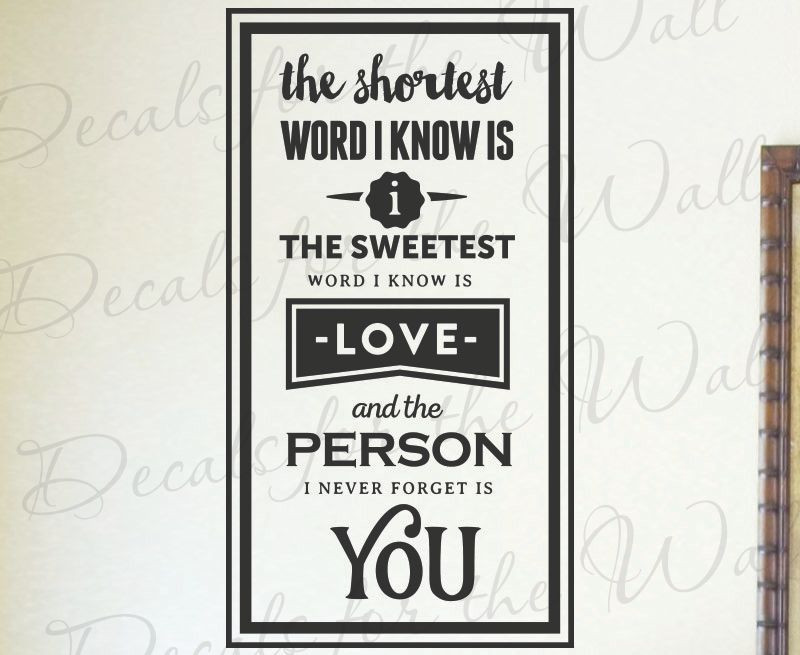 the shortest
WORD I KNOW IS
i
THE SWEETEST
WORD I KNOW IS
-LOVE-
and the
PERSON
I NEVER FORGET IS
YOU
Decals for the Wall
Decals for the Wall
Decals for the Wall
Decals for the Wall